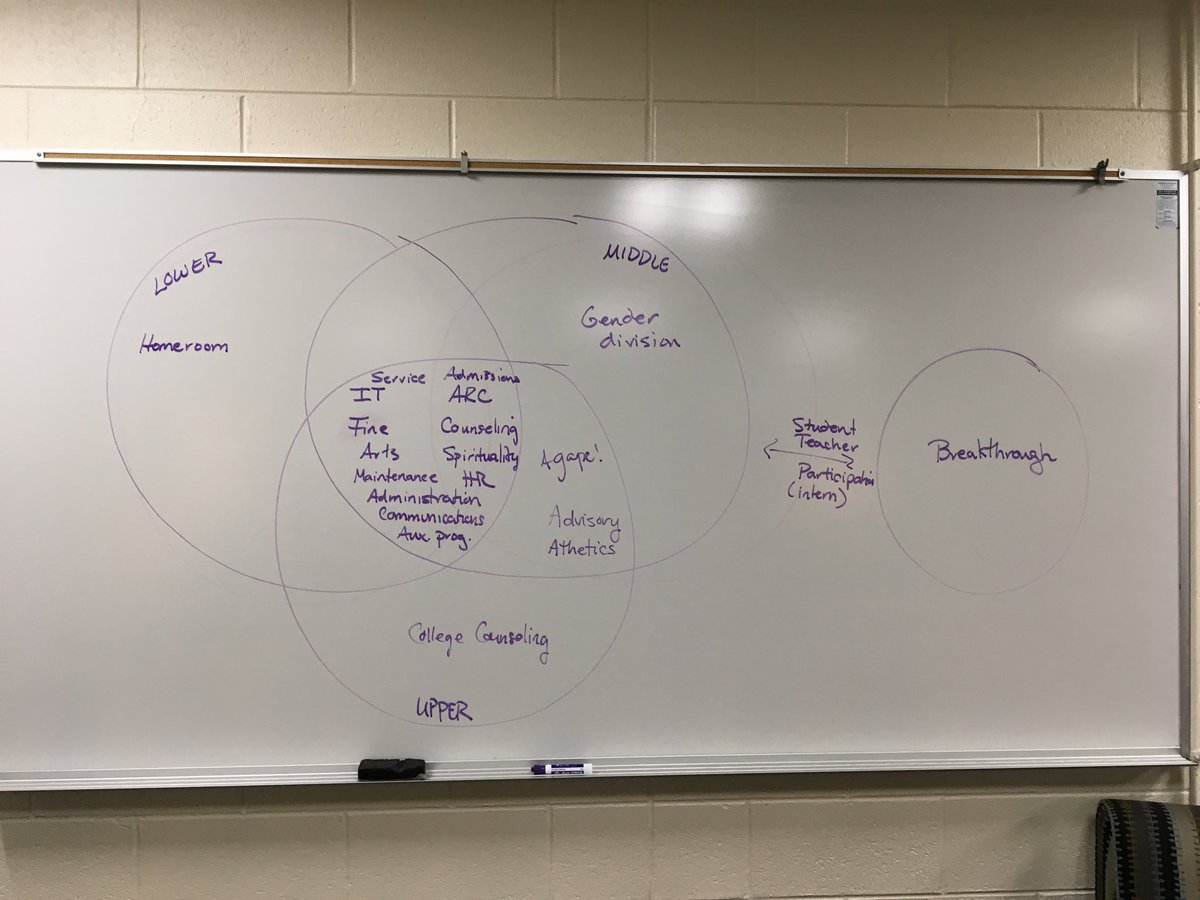 LOWER
Homeroom
MIDDLE
Gender
division
Service Admissions
IT ARC
Fine Counseling
Arts Spirituality
Maintenance HR
Administration
Communications
Aux prog.
Agape!
Advisory
Athetics
College Counseling
UPPER
Student
Teacher
Participation
(intern)
Breakthrough